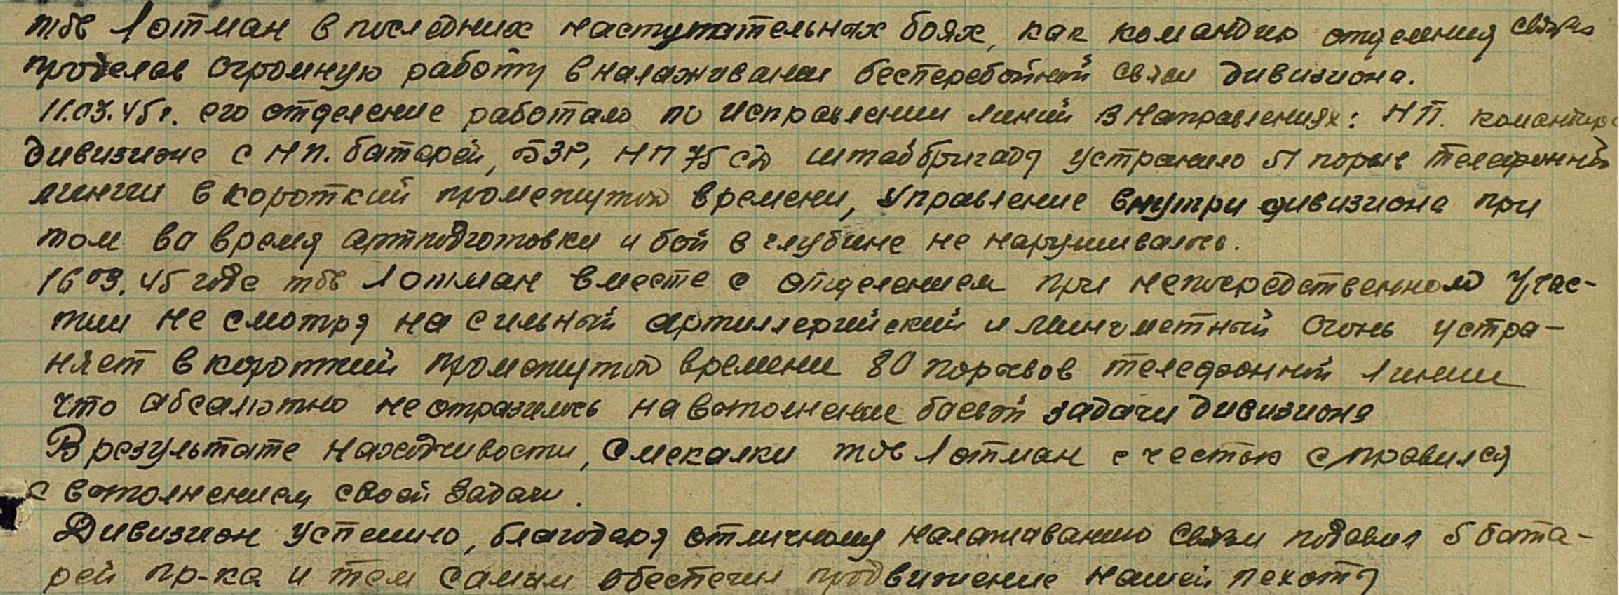 тов Лотман в последних наступательных боях, как командир отделения связи
проделал огромную работу в налаживании бесперебойной связи дивизиона.
11.03.45г. его отделение работало по исправлении линий в направлениях: НП. командира
дивизиона с НП. батарей, БЗР, НП 75 сд штабригады устранило 51 порыв телефонной
линии в короткий промежуток времени, управление внутри дивизиона при
том ва время артподготовки и бой в глубине не нарушивалось.
16 03. 45 года тов Лотман вместе с отделением при непосредственном учас-
тии не смотря на сильный артиллерийский и минометный огонь устра-
няет в короткий промежуток времени 80 порывов телефонной линии
что абсалютно не отразилось на выполнение боевой задачи дивизиона
В результате находчивости, смекалки тов Лотман с честью справился
с выполнением своей задачи.
Дивизион успешно, благодаря отличному налаживанию связи подавил 5 бата-
рей пр-ка и тем самым обеспечил продвижение нашей пехоты